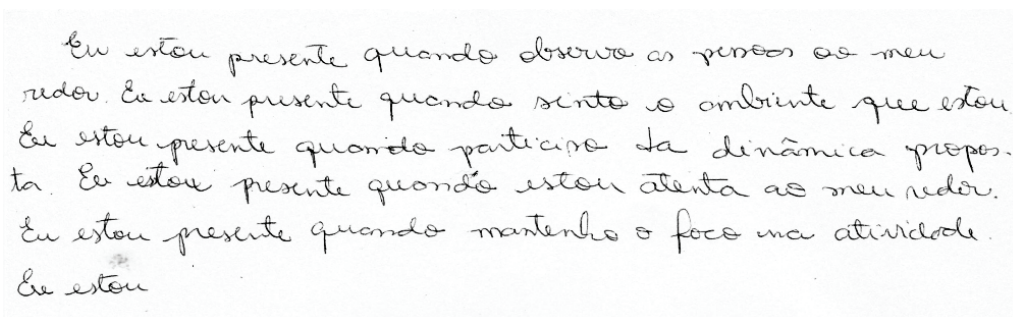 Eu estou presente quando observo as pessoas ao meu
redor. Eu estou presente quando sinto o ambiente que estou.
Eu estou presente quando participo da dinâmica propos-
ta. Eu estou presente quando estou atenta ao meu redor.
Eu estou presente quando mantenho o foco na atividade.
Eu estou